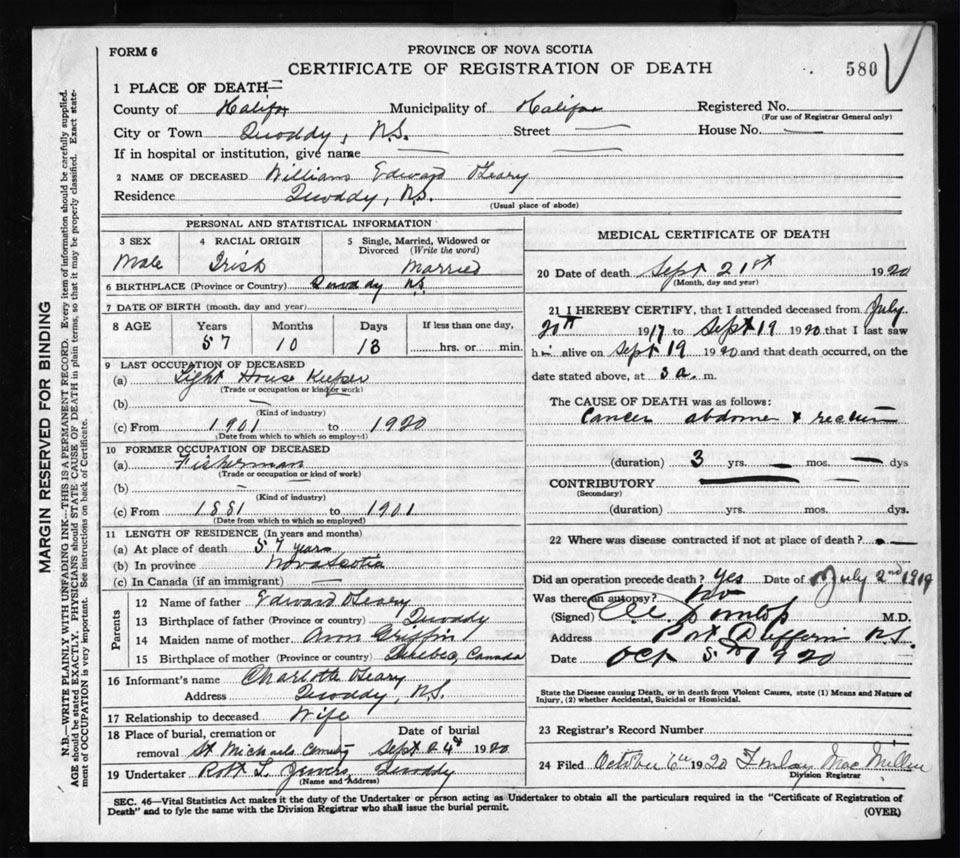 FORM 6
PROVINCE OF NOVA SCOTIA
CERTIFICATE OF REGISTRATION OF DEATH
580
1 PLACE OF DEATH—
County of Halifax Municipality of Halifax Registered No.
(For use of Registrar General only)
City or Town Quoddy, N.S. Street — House No. —
If in hospital or institution, give name — —
2 NAME OF DECEASED William Edward O'Leary
Residence Quoddy, N.S.
(Usual place of abode)
PERSONAL AND STATISTICAL INFORMATION
3 SEX 4 RACIAL ORIGIN 5 Single, Married, Widowed or Divorced (Write the word)
Male Irish Married
6 BIRTHPLACE (Province or Country) Quoddy N.S.
7 DATE OF BIRTH (month, day and year)
8 AGE Years Months Days If less than one day,
57 10 13 hrs. or min.
9 LAST OCCUPATION OF DECEASED
(a) Light House Keeper
(Trade or occupation or kind of work)
(b) —
(Kind of industry)
(c) From 1901 to 1920
(Date from which to which so employed)
10 FORMER OCCUPATION OF DECEASED
(a) Fisherman
(Trade or occupation or kind of work)
(b) —
(Kind of industry)
(c) From 1881 to 1901
(Date from which to which so employed)
11 LENGTH OF RESIDENCE (In years and months)
(a) At place of death 57 years
(b) In province Nova Scotia
(c) In Canada (if an immigrant) —
Parents
12 Name of father Edward O'Leary
13 Birthplace of father (Province or country) Quoddy
14 Maiden name of mother Ann Griffin
15 Birthplace of mother (Province or country) Quebec, Canada
16 Informant's name Charlotte O'Leary
Address Quoddy, N.S.
17 Relationship to deceased Wife
18 Place of burial, cremation or Date of burial
removal St Michaels Cemetry Sept 24th 1920
19 Undertaker Robt L. Quoddy
(Name and Address)
MEDICAL CERTIFICATE OF DEATH
20 Date of death Sept 21st 1920
(Month, day and year)
21 I HEREBY CERTIFY, that I attended deceased from July
20th 1917 to Sept 19 1920 that I last saw
him alive on Sept 19 1920 and that death occurred, on the
date stated above, at 3 a. m.
The CAUSE OF DEATH was as follows:
Cancer abdomen & rectum
(duration) 3 yrs. — mos. — dys
CONTRIBUTORY —
(Secondary)
(duration) yrs. mos. dys.
22 Where was disease contracted if not at place of death? —
Did an operation precede death? Yes Date of July 2nd 1919
Was there an autopsy? No
(Signed) Dunlop M.D.
Address Port Dufferin N.S.
Date Oct 5th 1920
State the Disease causing Death, or in death from Violent Causes, state (1) Means and Nature of
Injury, (2) whether Accidental, Suicidal or Homicidal.
23 Registrar's Record Number
24 Filed October 6th 1920 Finlay MacMillan
Division Registrar
SEC. 46—Vital Statistics Act makes it the duty of the Undertaker or person acting as Undertaker to obtain all the particulars required in the "Certificate of Registration of
Death" and to fyle the same with the Division Registrar who shall issue the burial permit.
(OVER)
MARGIN RESERVED FOR BINDING
N.B.—WRITE PLAINLY WITH UNFADING INK—THIS IS A PERMANENT RECORD. Every item of information should be carefully supplied.
AGE should be stated EXACTLY. PHYSICIANS should STATE CAUSE OF DEATH in plain terms, so that it may be properly classified. Exact state-
ment of OCCUPATION is very important. See instructions on back of Certificate.